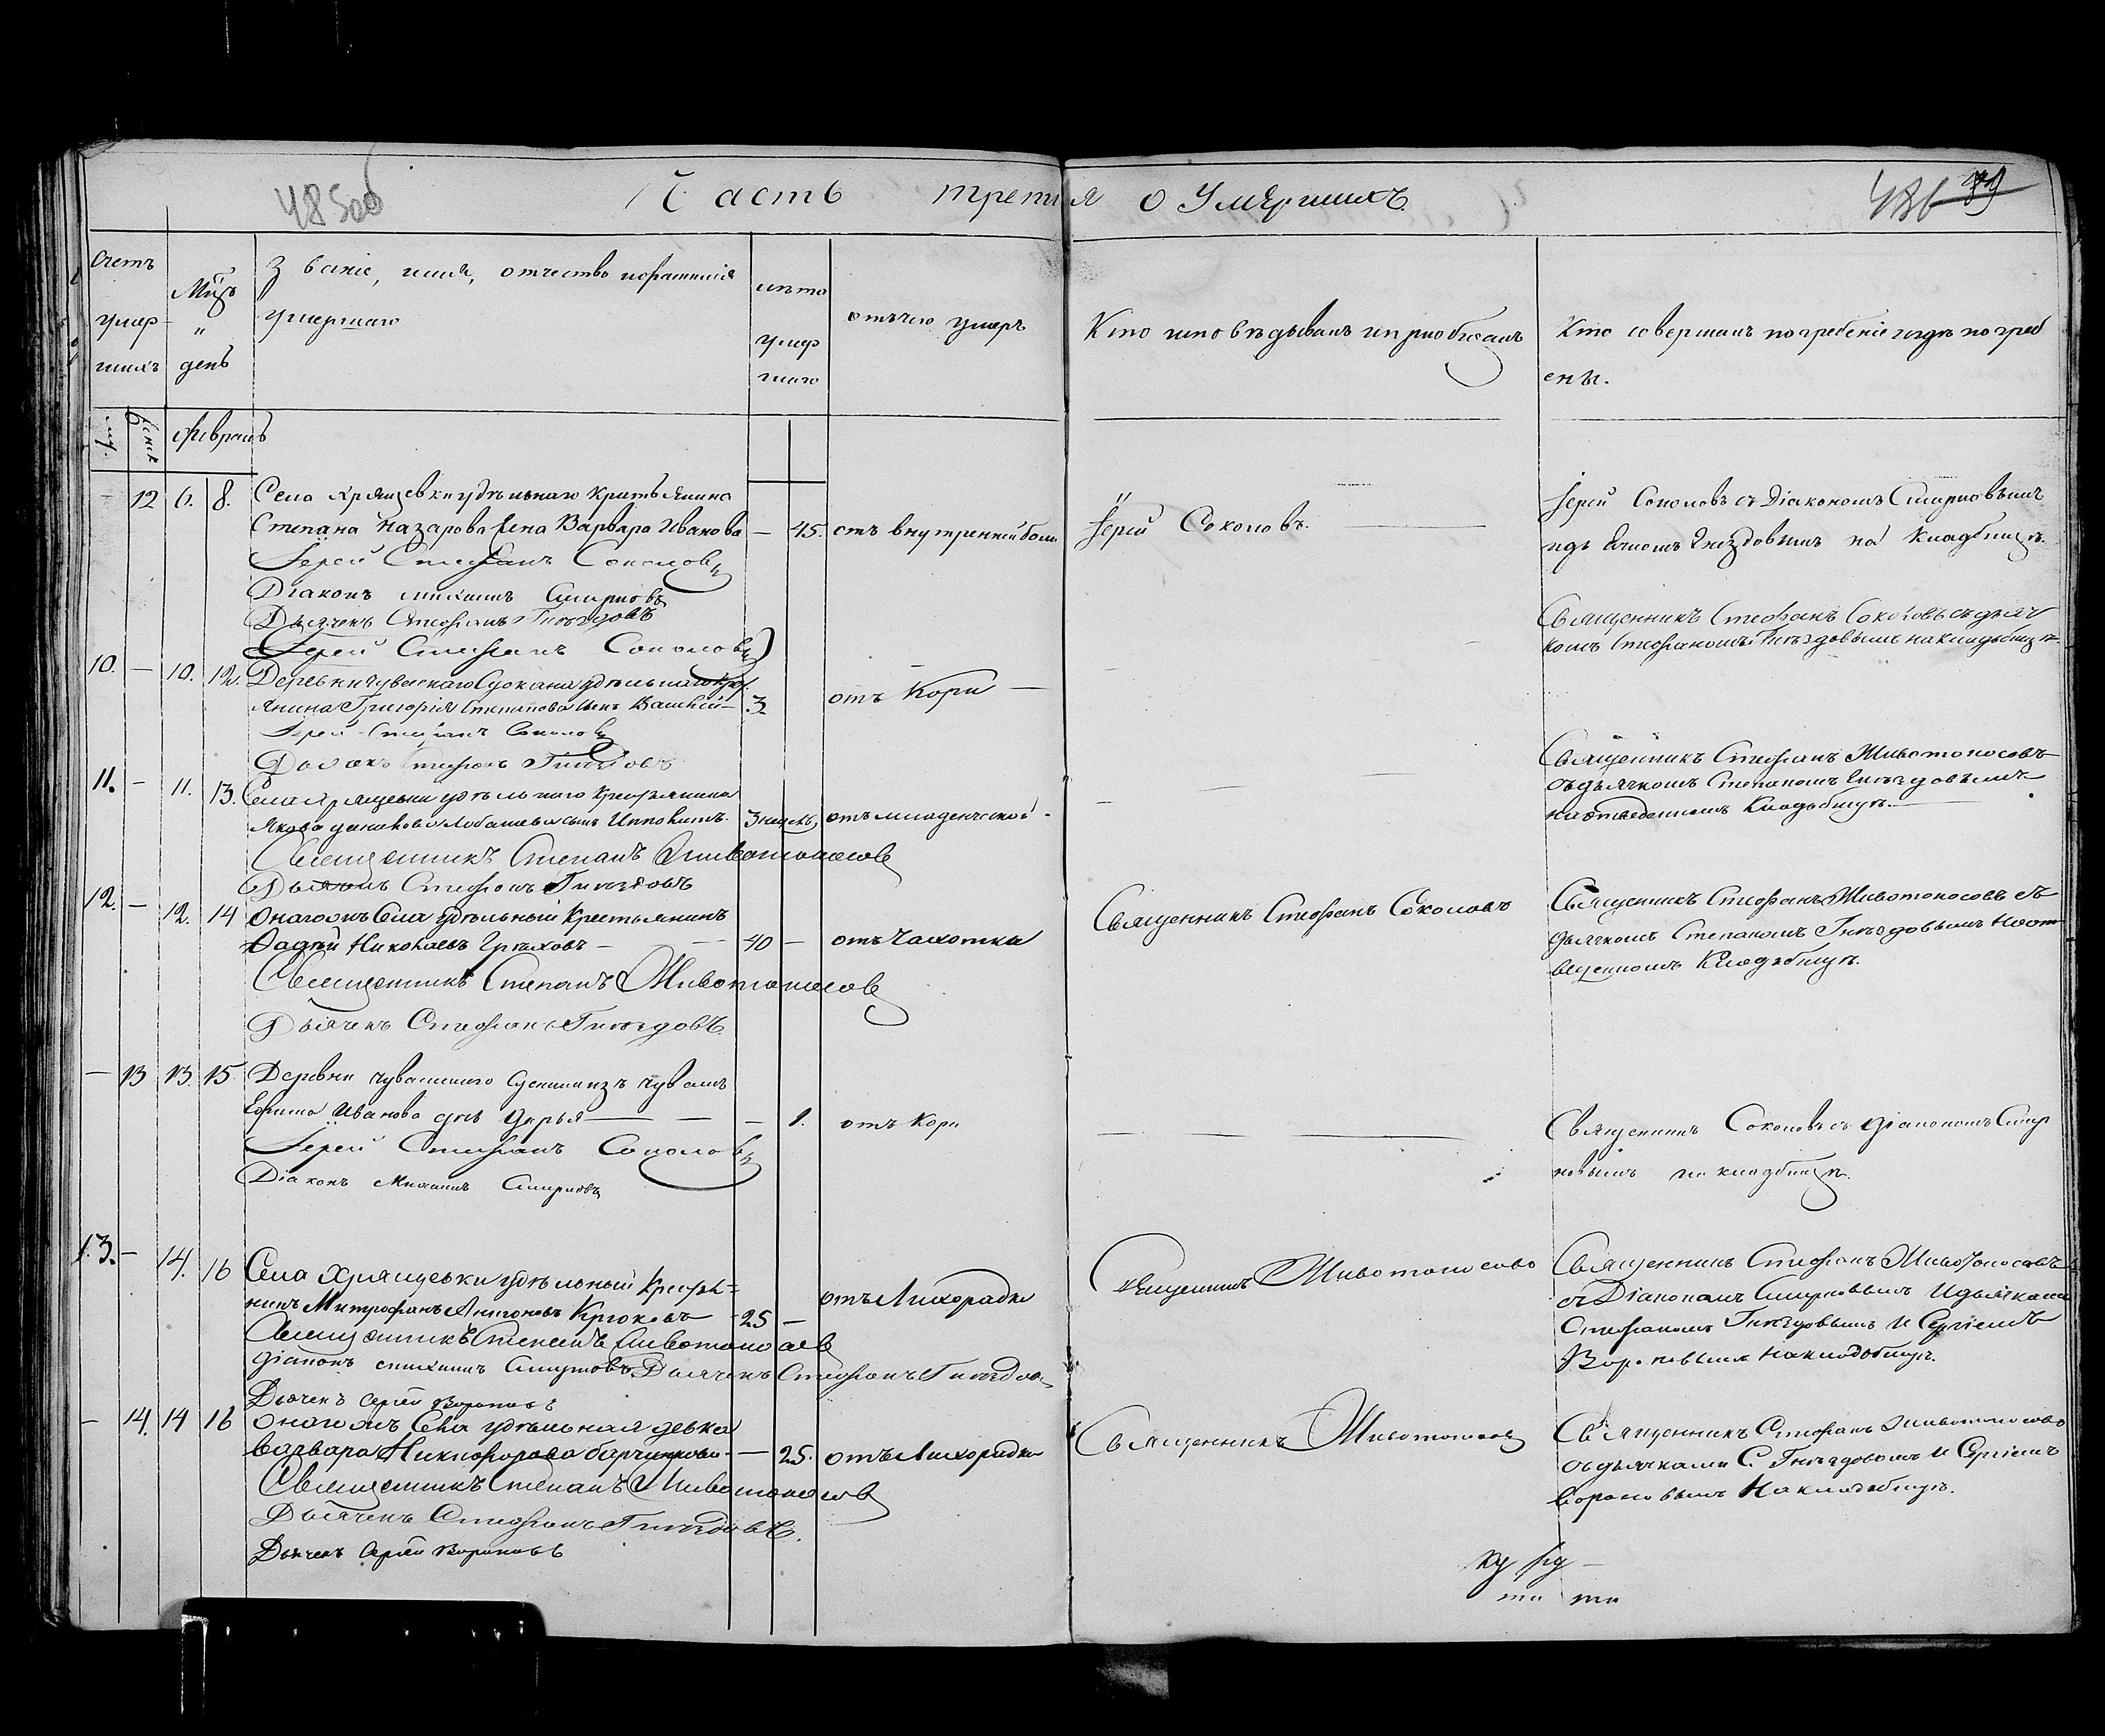 48506
Часть третия о Умершихъ.
486 89
Счетъ умер шихъ
Мѣц. " день
Званіе, имя, отчество и фамилія умершаго
лѣто умер шаго
отъ чего умеръ
Кто исповѣдывалъ и пріобщалъ
Кто совершалъ погребеніе и гдѣ погреб
ены.
муж. женск
Февраль
12 6. 8. Села Хрящевки удѣльнаго крестьянина
Степана Назарова жена Варвара Иванова — 45. отъ внутренней боли
Іерей Соколовъ.
Іерей Соколовъ съ Діакономъ Смирновымъ
и дьячкомъ Гнездовымъ на кладбищѣ.
Іерей Стефанъ Соколовъ
Діаконъ Михаилъ Смирновъ
Дьячекъ Стефанъ Гнѣздовъ
Іерей Стефанъ Соколовъ
10. — 10. 12. Деревни чувскаго Сускана удѣльнаго крес.
янина Григорія Степанова сынъ Василій — 3 отъ Кори —
Священникъ Стефанъ Соколовъ съ дьяч
комъ Стефаномъ Гнѣздовымъ на кладбищѣ.
Іерей Стефанъ Соколовъ
Дьячекъ Стефанъ Гнѣздовъ
11. — 11. 13. Села Хрящевки удѣльнаго крестьянина
Якова Лобашева сынъ Ипполитъ. 3 недѣль отъ младенческой.
Священникъ Стефанъ Животоносовъ
съ дьячкомъ Степаномъ Гнѣздовымъ
на отведенномъ Кладбищѣ.
Священникъ Степанъ Животоносовъ
Дьячекъ Стефанъ Гнѣздовъ
12. — 12. 14 Онагожъ Села удѣльный Крестьянинъ
Фадѣй Николаевъ Грѣховъ — — 40 — отъ Чахотки
Священникъ Стефанъ Соколовъ
Священникъ Стефанъ Животоносовъ съ
дьячкомъ Степаномъ Гнѣздовымъ на от
веденномъ Кладбищѣ.
Священникъ Степанъ Животоносовъ
Дьячекъ Стефанъ Гнѣздовъ.
— 13 13 15 Деревни чувашскаго изъ чувашъ
Ефима Иванова дочь Дарья — — — 1. отъ Кори
Священникъ Соколовъ съ діакономъ Смир
новымъ на кладбищѣ.
Іерей Стефанъ Соколовъ
Діаконъ Михаилъ Смирновъ
13. — 14. 16 Села Хрящевки удѣльный Крестья=
нинъ Митрофанъ Антоновъ Крюковъ 25 — отъ Лихорадки
Священникъ Животоносовъ
Священникъ Стефанъ Животоносовъ
съ Діакономъ Смирновымъ и дьячками
Стефаномъ Гнѣздовымъ и Сергіемъ
Вороновымъ на кладбищѣ.
Священникъ Степанъ Животоносовъ
Діаконъ Михаилъ Смирновъ Дьячекъ Стефанъ Гнѣздовъ
Дьячекъ Сергей Вороновъ
— 14. 14 16 Онагожъ Села удѣльная девка
Варвара Никифорова — 25. отъ Лихорадки
Священникъ Животоносовъ
Священникъ Стефанъ Животоносовъ
съ дьячками С. Гнѣздовымъ и Сергіемъ
Вороновымъ на кладбищѣ.
Священникъ Степанъ Животоносовъ
Дьячекъ Стефанъ Гнѣздовъ.
Дьячекъ Сергей Вороновъ